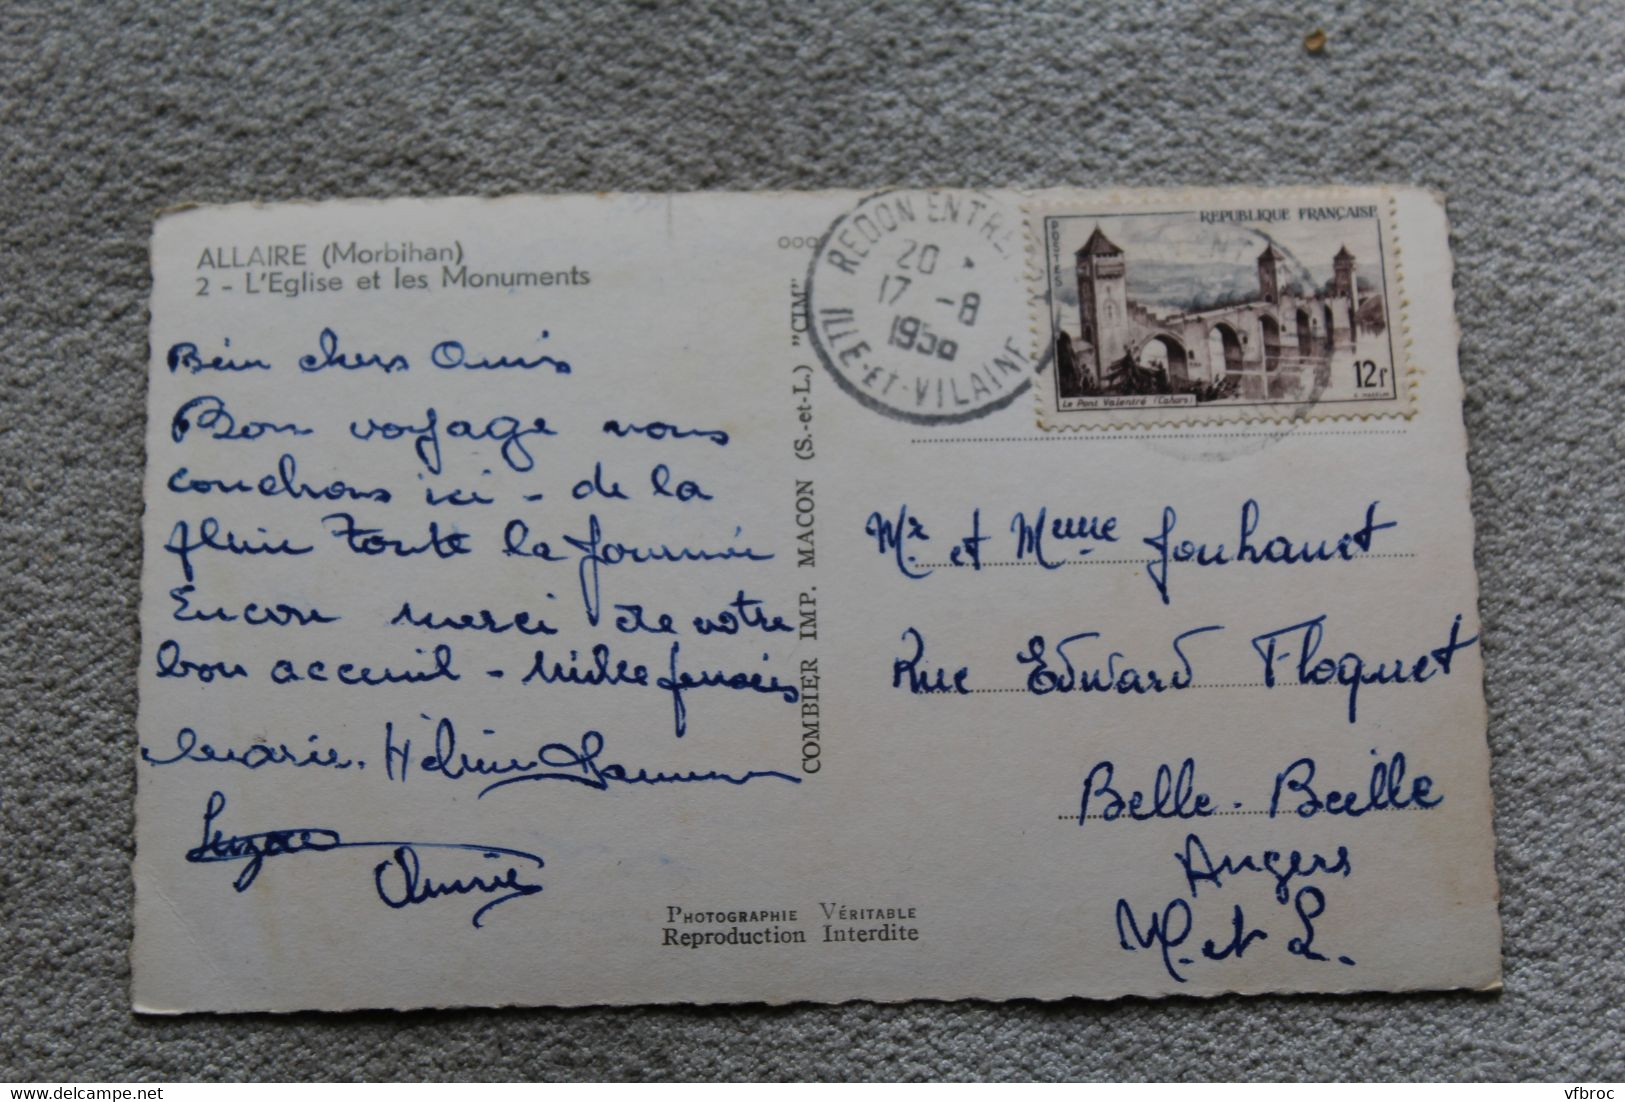 ALLAIRE (Morbihan)
2 - L'Eglise et les Monuments
Bien chers Amis
Bon voyage nous
couchons ici - de la
pluie toute la journée
Encore merci de votre
bon acceuil - Mille pensées
Marie. Hélène
COMBIER IMP. MACON (S.-et-L.) "CIM"
PHOTOGRAPHIE VÉRITABLE
Reproduction Interdite
REDON ENTREPONT
20
17 -8
195
ILLE-ET-VILAINE
REPUBLIQUE FRANÇAISE
POSTES
12f
Le Pont Valentré (Cahors)
Mr et Mme Jouhanet
Rue Edward Floquet
Belle-Beille
Angers
M. et L.
vfbroc